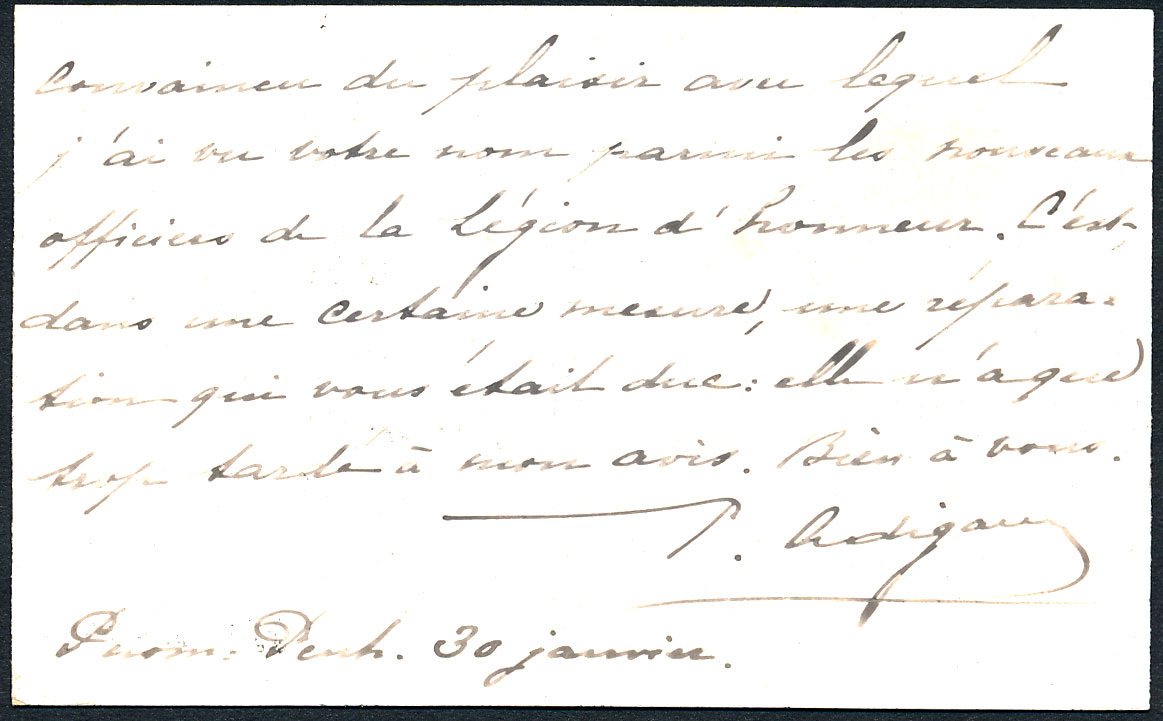 convaincu du plaisir avec lequel
j'ai vu votre nom parmi les nouveaux
officiers de la Légion d'honneur. C'est
dans une certaine mesure, une répara-
tion qui vous était due : elle n'a que
trop tardé à mon avis. Bien à vous.
P. Ardigau
Pnom-Penh. 30 janvier.